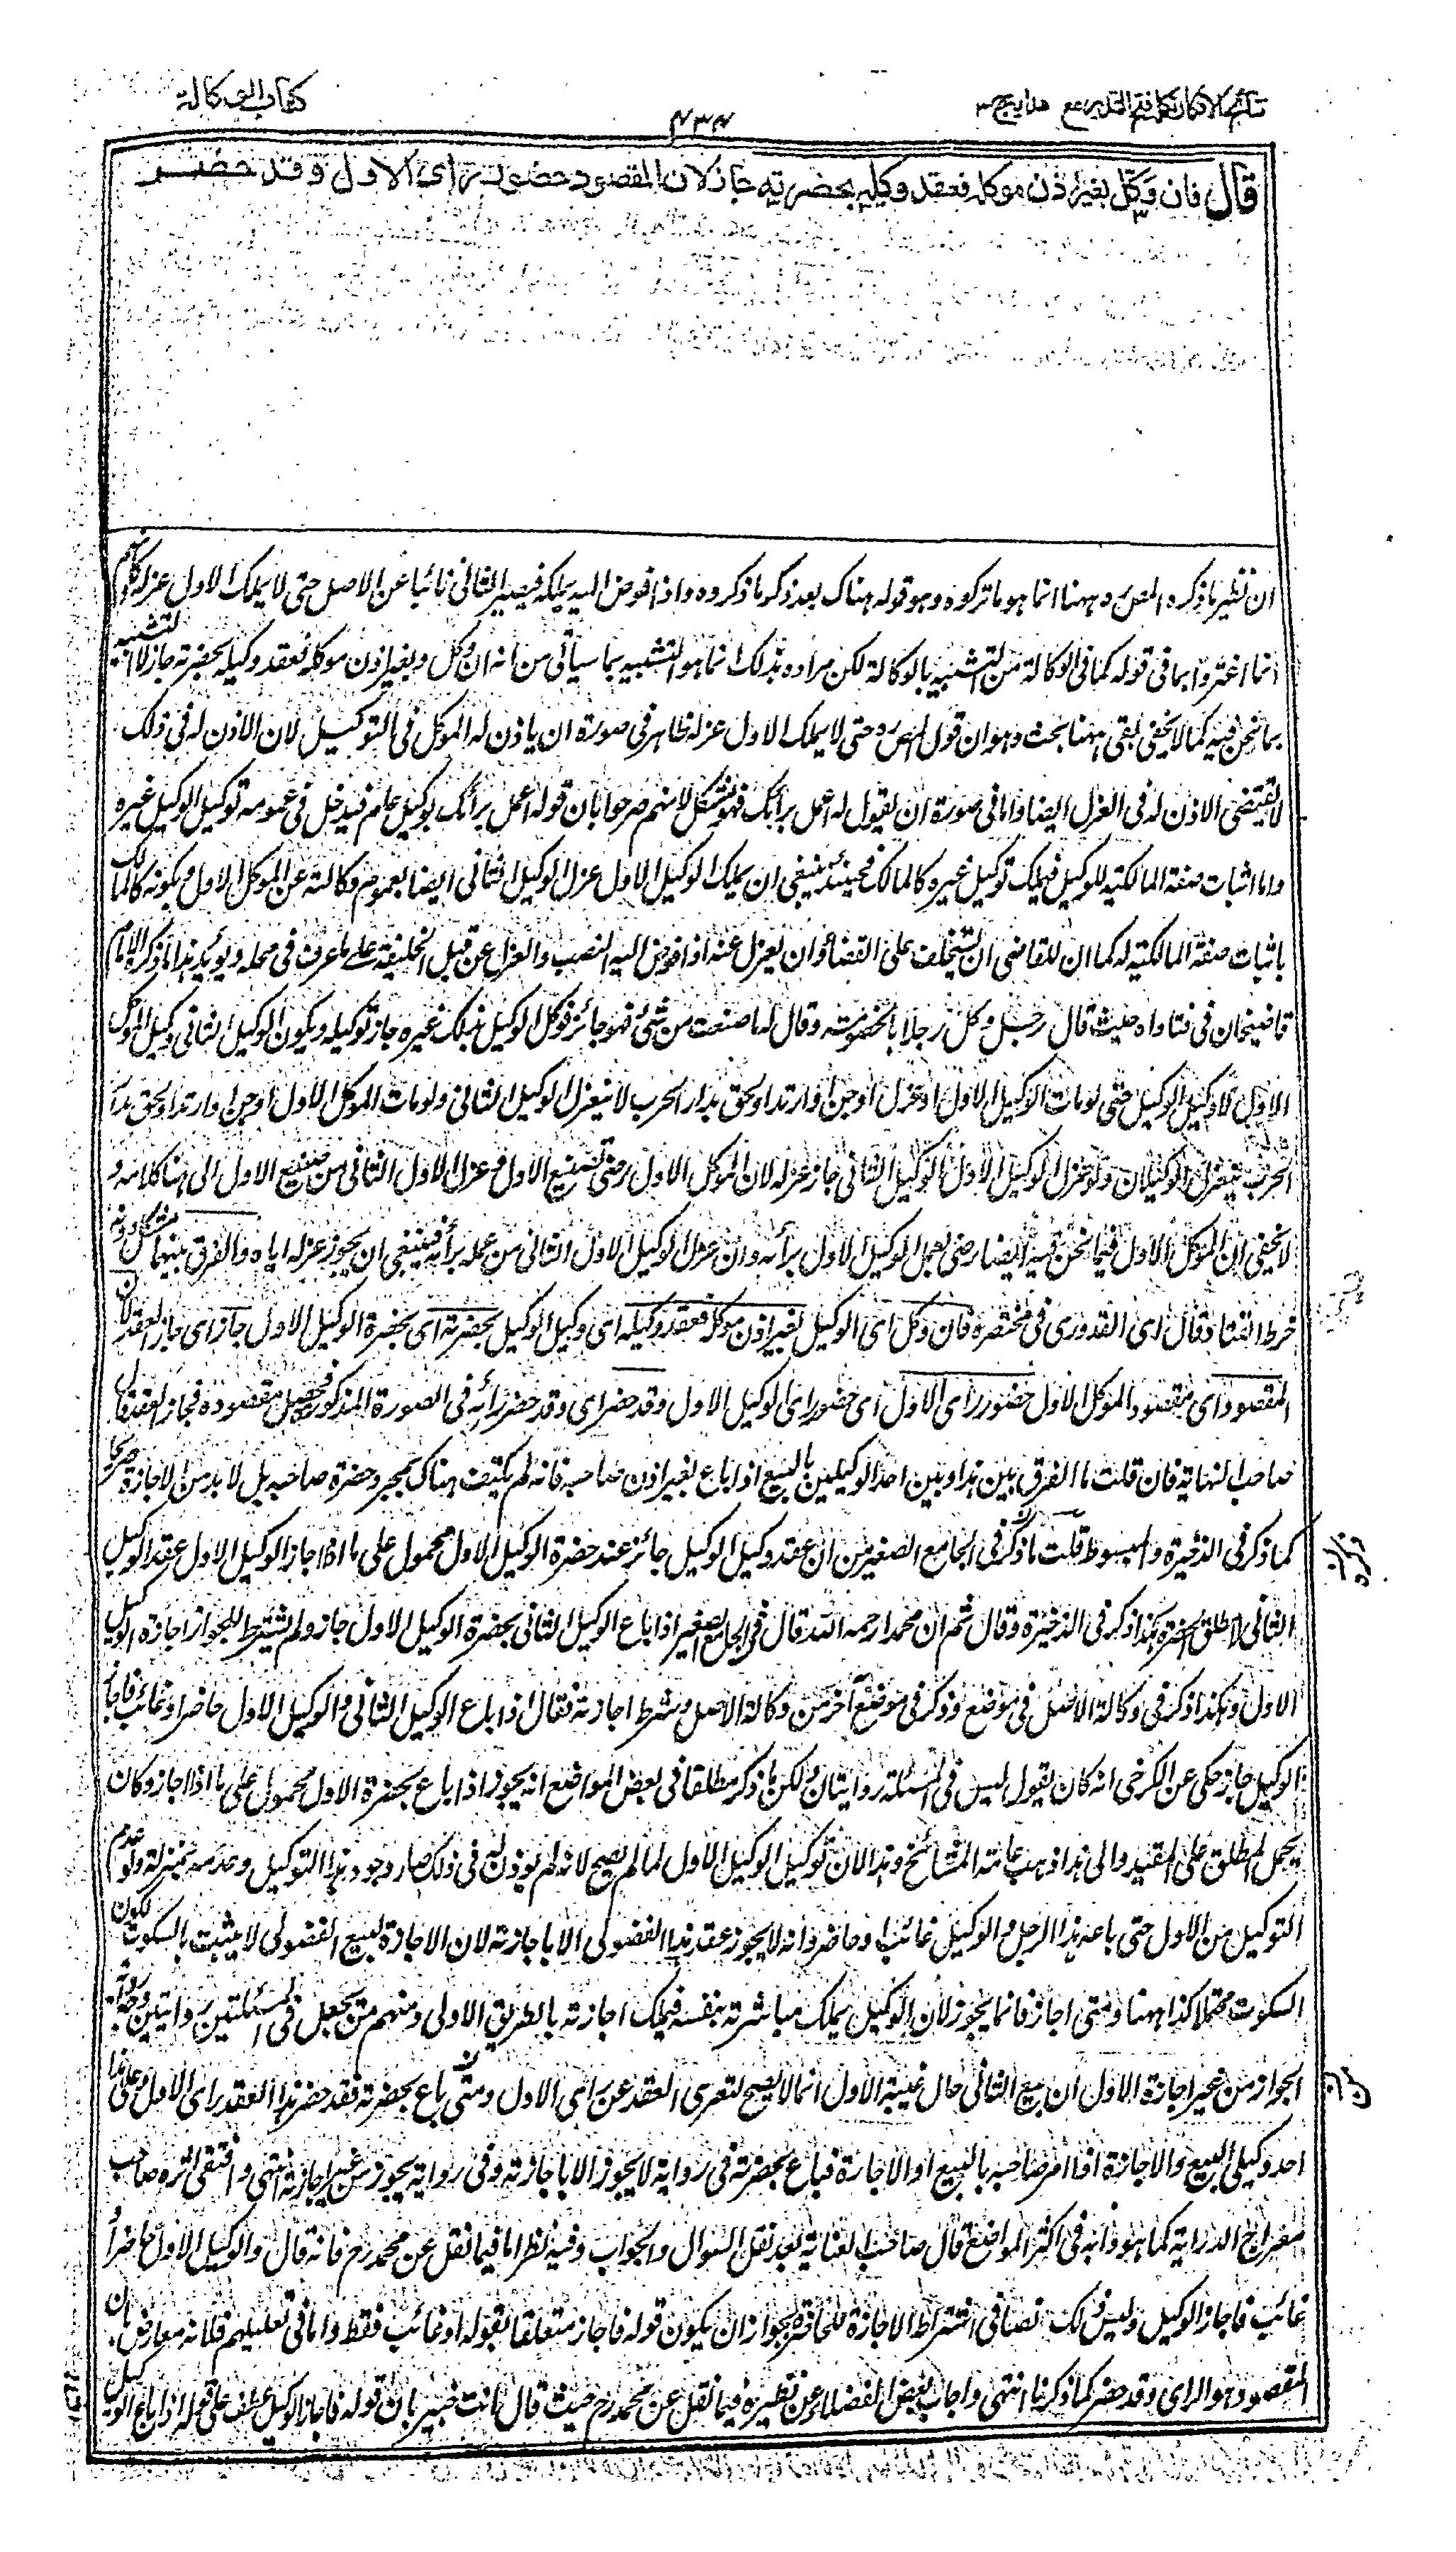 نتائج الافكار تكملة فتح القدير مع هدايه ج ٣
٤٣٤
كتاب الوكالة
قال فان وكل بغير اذن موكله فعقد وكيله بحضرته جاز لان المقصود حضور راى الاول وقد حضر
ان نظير ما ذكره المصره ههنا انما هو ما تركوه وهو قوله هناك بعد ذكر ما ذكروه واذا فوض اليه يملكه فيصير الثانى نائبا عن الاصل حتى لا يملك الاول عزله كانهم
انما اغتروا بما فى قوله كما فى الوكالة من التشبيه بالوكالة لكن مراده بذلك انما هو التشبيه بما سيأتى من انه ان وكل بغير اذن موكله فعقد وكيله بحضرته جاز لا التشبيه
بما نحن فيه كما لا يخفى بقى ههنا بحث وهو ان قول المصره حتى لا يملك الاول عزله ظاهر فى صورة ان ياذن له الموكل فى التوكيل لان الاذن له فى ذلك
لا يقتضى الاذن له فى العزل ايضا واما فى صورة ان يقول له اعمل برأيك فهو مشكل لانهم صرحوا بان قوله اعمل برأيك توكيل عام فيدخل فى عمومه توكيل الوكيل غيره
واما اثبات صفة المالكية للوكيل فيملك توكيل غيره كالمالك فحينئذ ينبغى ان يملك الوكيل الاول عزل الوكيل الثانى ايضا بعموم وكالته عن الموكل الاول وبكونه كالمالك
باثبات صفة المالكية له كما ان للقاضى ان يستخلف على القضاء وان يعزل عنه اذا فوض اليه النصب والعزل عن قبل الخليفة على ما عرف فى محله ويؤيد هذا ما ذكره الامام
قاضيخان فى فتاواه حيث قال رجل وكل رجلا بالخصومة وقال له ما صنعت من شئ فهو جائز فوكل الوكيل بذلك غيره جاز توكيله ويكون الوكيل الثانى وكيل الموكل
الاول لا وكيل الوكيل حتى لو مات الوكيل الاول او عزل او جن او ارتد او لحق بدار الحرب لا ينعزل الوكيل الثانى ولو مات الموكل الاول او جن او ارتد او لحق بدار
الحرب ينعزل الوكيلان ولو عزل الوكيل الاول الوكيل الثانى جاز عزله لان الموكل الاول رضى بصنيع الاول وعزل الاول الثانى من صنيع الاول الى هنا كلامه و
لا يخفى ان الموكل الاول فيما نحن فيه ايضا رضى بعمل الوكيل الاول برأيه وان عزل الوكيل الاول الثانى من عمله برأيه فينبغى ان يجوز عزله اياه والفرق بينهما مشكل دونه
خرط القتاد وقال اى القدورى فى مختصره فان وكل اى الوكيل بغير اذن موكله فعقد وكيله اى وكيل الوكيل بحضرته اى بحضرة الوكيل الاول جاز اى جاز العقد لان
المقصود اى مقصود الموكل الاول حضور راى الاول اى حضور راى الوكيل الاول وقد حضر اى وقد حضر رأيه فى الصورة المذكورة فحصل مقصوده فجاز العقد قال
صاحب النهاية فان قلت ما الفرق بين هذا وبين احد الوكيلين بالبيع اذا باع بغير اذن صاحبه فانه لم يكتف هناك بمجرد حضرة صاحبه بل لا بد من الاجازة صريحا
كما ذكر فى الذخيرة والمبسوط قلت ما ذكر فى الجامع الصغير من ان عقد وكيل الوكيل جائز عند حضرة الوكيل الاول محمول على ما اذا اجاز الوكيل الاول عقد الوكيل
الثانى لا مطلق الحضرة هكذا ذكر فى الذخيرة وقال ثم ان محمدا رحمه الله قال فى الجامع الصغير اذا باع الوكيل الثانى بحضرة الوكيل الاول جاز ولم يشترط للجواز اجازة الوكيل
الاول وهكذا ذكر فى وكالة الاصل فى موضع وذكر فى موضع آخر من وكالة الاصل وشرط اجازته فقال اذا باع الوكيل الثانى والوكيل الاول حاضر او غائب فاجاز
الوكيل جاز حكى عن الكرخى انه كان يقول ليس فى المسئلة روايتان ولكن ما ذكر مطلقا فى بعض المواضع انه يجوز اذا باع بحضرة الاول محمول على ما اذا اجاز وكان
يحمل المطلق على المقيد والى هذا ذهب عامة المشائخ وهذا لان توكيل الوكيل الاول لما لم يصح لانه لم يؤذن له فى ذلك صار وجود هذا التوكيل وعدمه بمنزلة ولو عدم
التوكيل من الاول حتى باعه هذا الرجل والوكيل غائب او حاضر فانه لا يجوز عقد هذا الفضولى الا باجازته لان الاجازة لبيع الفضولى لا يثبت بالسكوت لكون
السكوت محتملا كذا ههنا ومتى اجاز فانما يجوز لان الوكيل يملك مباشرته بنفسه فيملك اجازته بالطريق الاولى ومنهم من يجعل فى المسئلتين روايتين وجه رواية
الجواز من غير اجازة الاول ان بيع الثانى حال غيبة الاول انما لا يصح لتعرى العقد عن راى الاول ومتى باع بحضرته فقد حضر هذا العقد راى الاول وعلى هذا
احد وكيلى البيع والاجارة اذا امر صاحبه بالبيع او الاجارة فباع بحضرته فى رواية لا يجوز الا باجازته وفى رواية يجوز من غير اجازته انتهى واقتفى اثره صاحب
معراج الدراية كما هو دأبه فى اكثر المواضع قال صاحب العناية بعد نقل السوال والجواب وفيه نظر اما فيما نقل عن محمد رح فانه قال والوكيل الاول حاضر او
غائب فاجاز الوكيل وليس ذلك نصا فى اشتراط الاجازة للحاضر لجواز ان يكون قوله فاجاز متعلقا بقوله او غائب فقط واما فى تعليلهم فلانه معارض بان
المقصود هو الراى وقد حضر كما ذكرنا انتهى واجاب بعض الفضلاء عن نظيره فيما نقل عن محمد رح حيث قال انت خبير بان قوله فاجاز الوكيل عطف على قوله اذا باع الوكيل